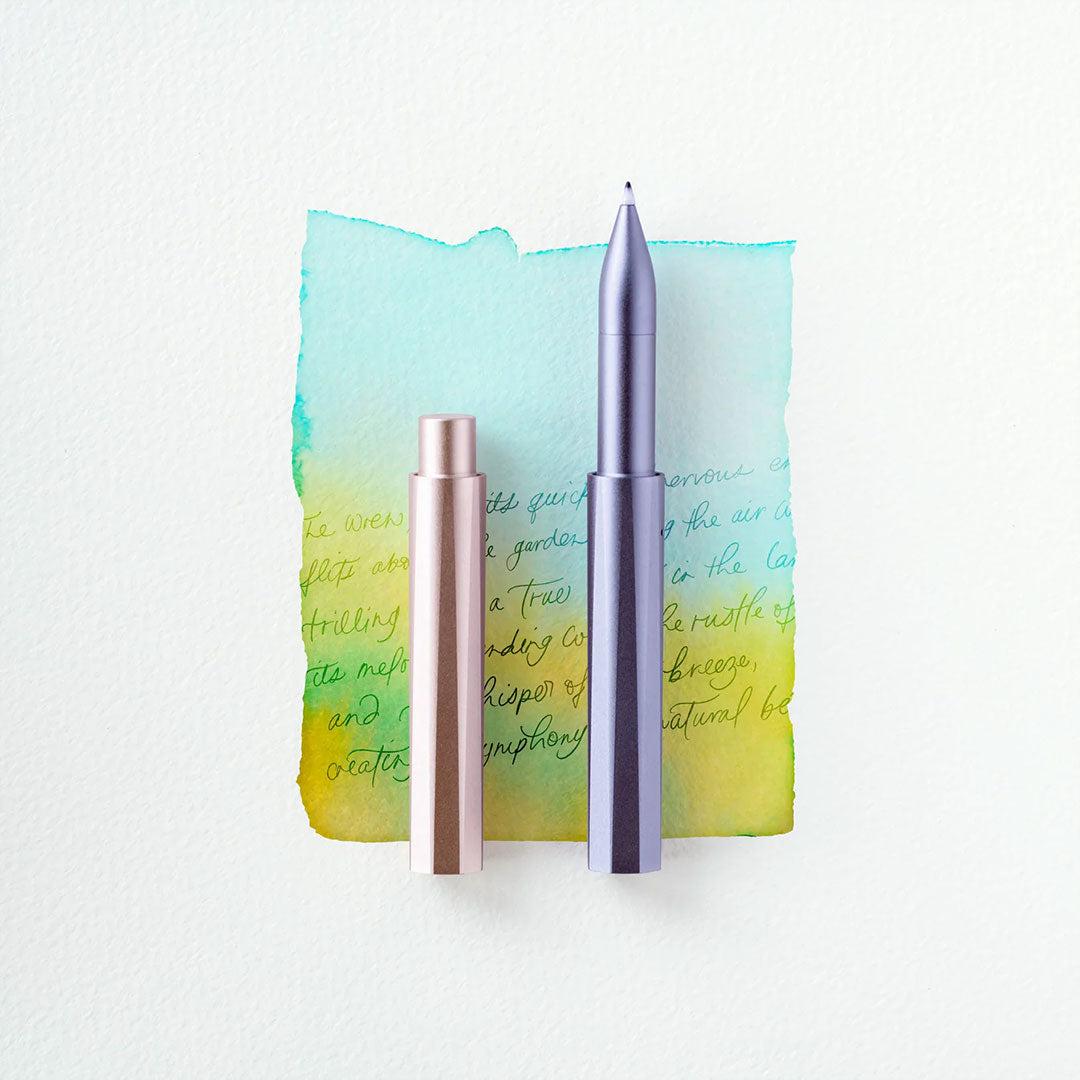 The wren, its quick nervous en
flits abo e garden g the air a
trilling a True in the lan
its melo nding co he rustle of
and hisper of breeze,
creatin ymphony natural be